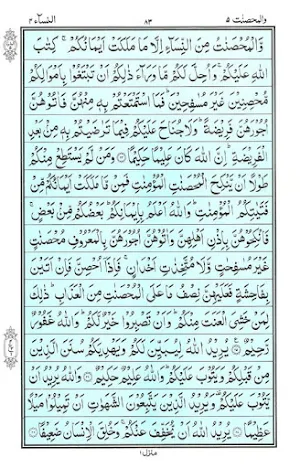 والمحصنت ٥ ٨٣ النساء ٤
وَّالْمُحْصَنٰتُ مِنَ النِّسَآءِ اِلَّا مَا مَلَكَتْ اَيْمَانُكُمْ ۚ كِتٰبَ
اللّٰهِ عَلَيْكُمْ ۚ وَاُحِلَّ لَكُمْ مَّا وَرَآءَ ذٰلِكُمْ اَنْ تَبْتَغُوْا بِاَمْوَالِكُمْ
مُّحْصِنِيْنَ غَيْرَ مُسٰفِحِيْنَ ؕ فَمَا اسْتَمْتَعْتُمْ بِهٖ مِنْهُنَّ فَاٰتُوْهُنَّ
اُجُوْرَهُنَّ فَرِيْضَةً ؕ وَلَا جُنَاحَ عَلَيْكُمْ فِيْمَا تَرٰضَيْتُمْ بِهٖ مِنْۢ بَعْدِ
الْفَرِيْضَةِ ؕ اِنَّ اللّٰهَ كَانَ عَلِيْمًا حَكِيْمًا ۝ وَمَنْ لَّمْ يَسْتَطِعْ مِنْكُمْ
طَوْلًا اَنْ يَّنْكِحَ الْمُحْصَنٰتِ الْمُؤْمِنٰتِ فَمِنْ مَّا مَلَكَتْ اَيْمَانُكُمْ مِّنْ
فَتَيٰتِكُمُ الْمُؤْمِنٰتِ ؕ وَاللّٰهُ اَعْلَمُ بِاِيْمَانِكُمْ ؕ بَعْضُكُمْ مِّنْۢ بَعْضٍ ۚ
فَانْكِحُوْهُنَّ بِاِذْنِ اَهْلِهِنَّ وَاٰتُوْهُنَّ اُجُوْرَهُنَّ بِالْمَعْرُوْفِ مُحْصَنٰتٍ
غَيْرَ مُسٰفِحٰتٍ وَّلَا مُتَّخِذٰتِ اَخْدَانٍ ۚ فَاِذَاۤ اُحْصِنَّ فَاِنْ اَتَيْنَ
بِفَاحِشَةٍ فَعَلَيْهِنَّ نِصْفُ مَا عَلَى الْمُحْصَنٰتِ مِنَ الْعَذَابِ ؕ ذٰلِكَ
لِمَنْ خَشِيَ الْعَنَتَ مِنْكُمْ ؕ وَاَنْ تَصْبِرُوْا خَيْرٌ لَّكُمْ ؕ وَاللّٰهُ غَفُوْرٌ
رَّحِيْمٌ ۝ يُرِيْدُ اللّٰهُ لِيُبَيِّنَ لَكُمْ وَيَهْدِيَكُمْ سُنَنَ الَّذِيْنَ
مِنْ قَبْلِكُمْ وَيَتُوْبَ عَلَيْكُمْ ؕ وَاللّٰهُ عَلِيْمٌ حَكِيْمٌ ۝ وَاللّٰهُ يُرِيْدُ اَنْ
يَّتُوْبَ عَلَيْكُمْ ۫ وَيُرِيْدُ الَّذِيْنَ يَتَّبِعُوْنَ الشَّهَوٰتِ اَنْ تَمِيْلُوْا مَيْلًا
عَظِيْمًا ۝ يُرِيْدُ اللّٰهُ اَنْ يُّخَفِّفَ عَنْكُمْ ۚ وَخُلِقَ الْاِنْسَانُ ضَعِيْفًا ۝
منزل ١